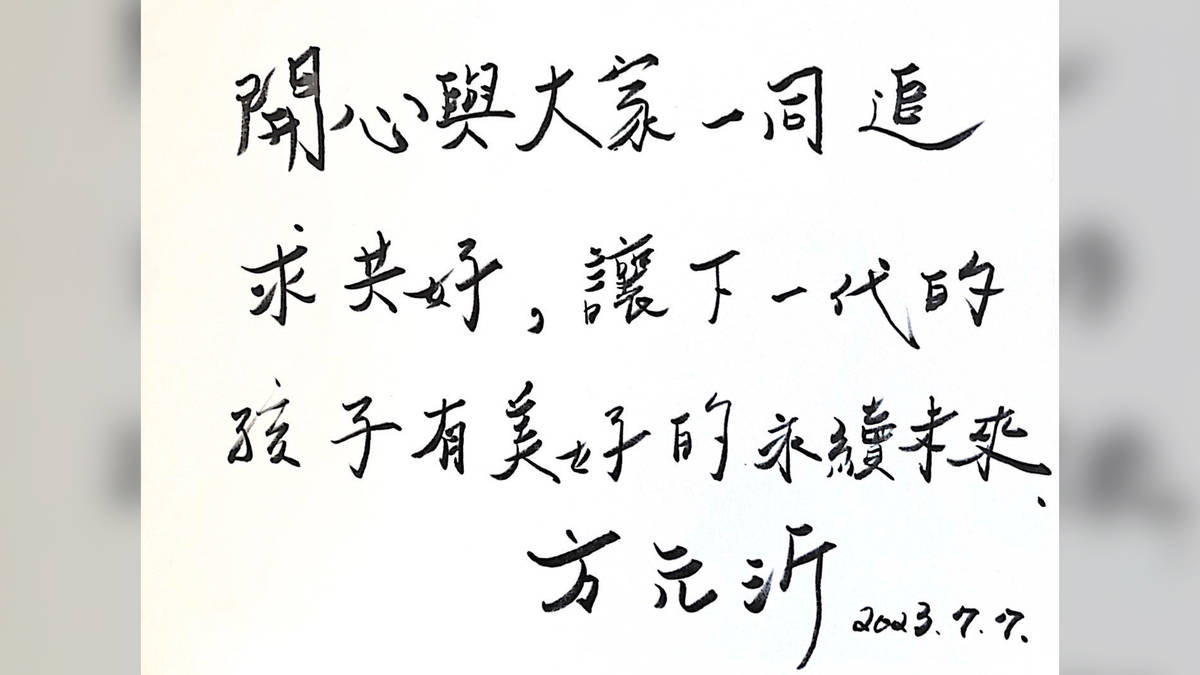 開心與大家一同追
求共好，讓下一代的
孩子有美好的永續未來、
方元沂 2023.7.7.